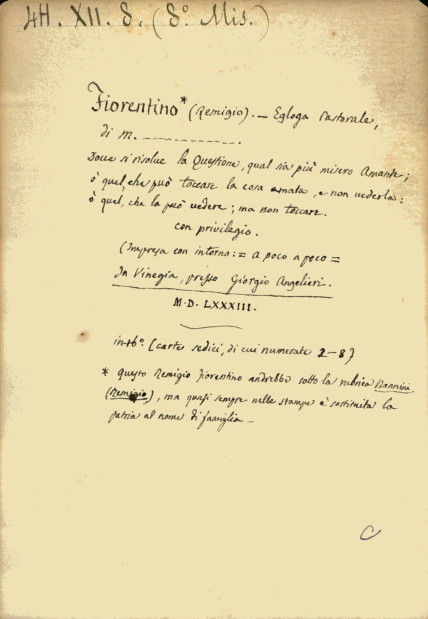 4H. XII. 8. (8.º Mis.)
Fiorentino* (Remigio). — Egloga Pastorale,
di M. _ _ _ _ _ _ _ _ _ _.
Dove si risolve la Questione, qual sia più misero Amante;
ò quel, che può toccare la cosa amata, e non vederla:
ò quel, che la può vedere; ma non toccare.
con privilegio.
(Impresa con intorno: = a poco a poco =
In Vinegia, presso Giorgio Angelieri.
M.D.LXXXIII.
in-16.º (carte sedici, di cui numerate 2–8)
* questo Remigio Fiorentino andrebbe sotto la rubrica Nannini
(Remigio), ma quasi sempre nelle stampe è sostituita la
patria al nome di famiglia —
C